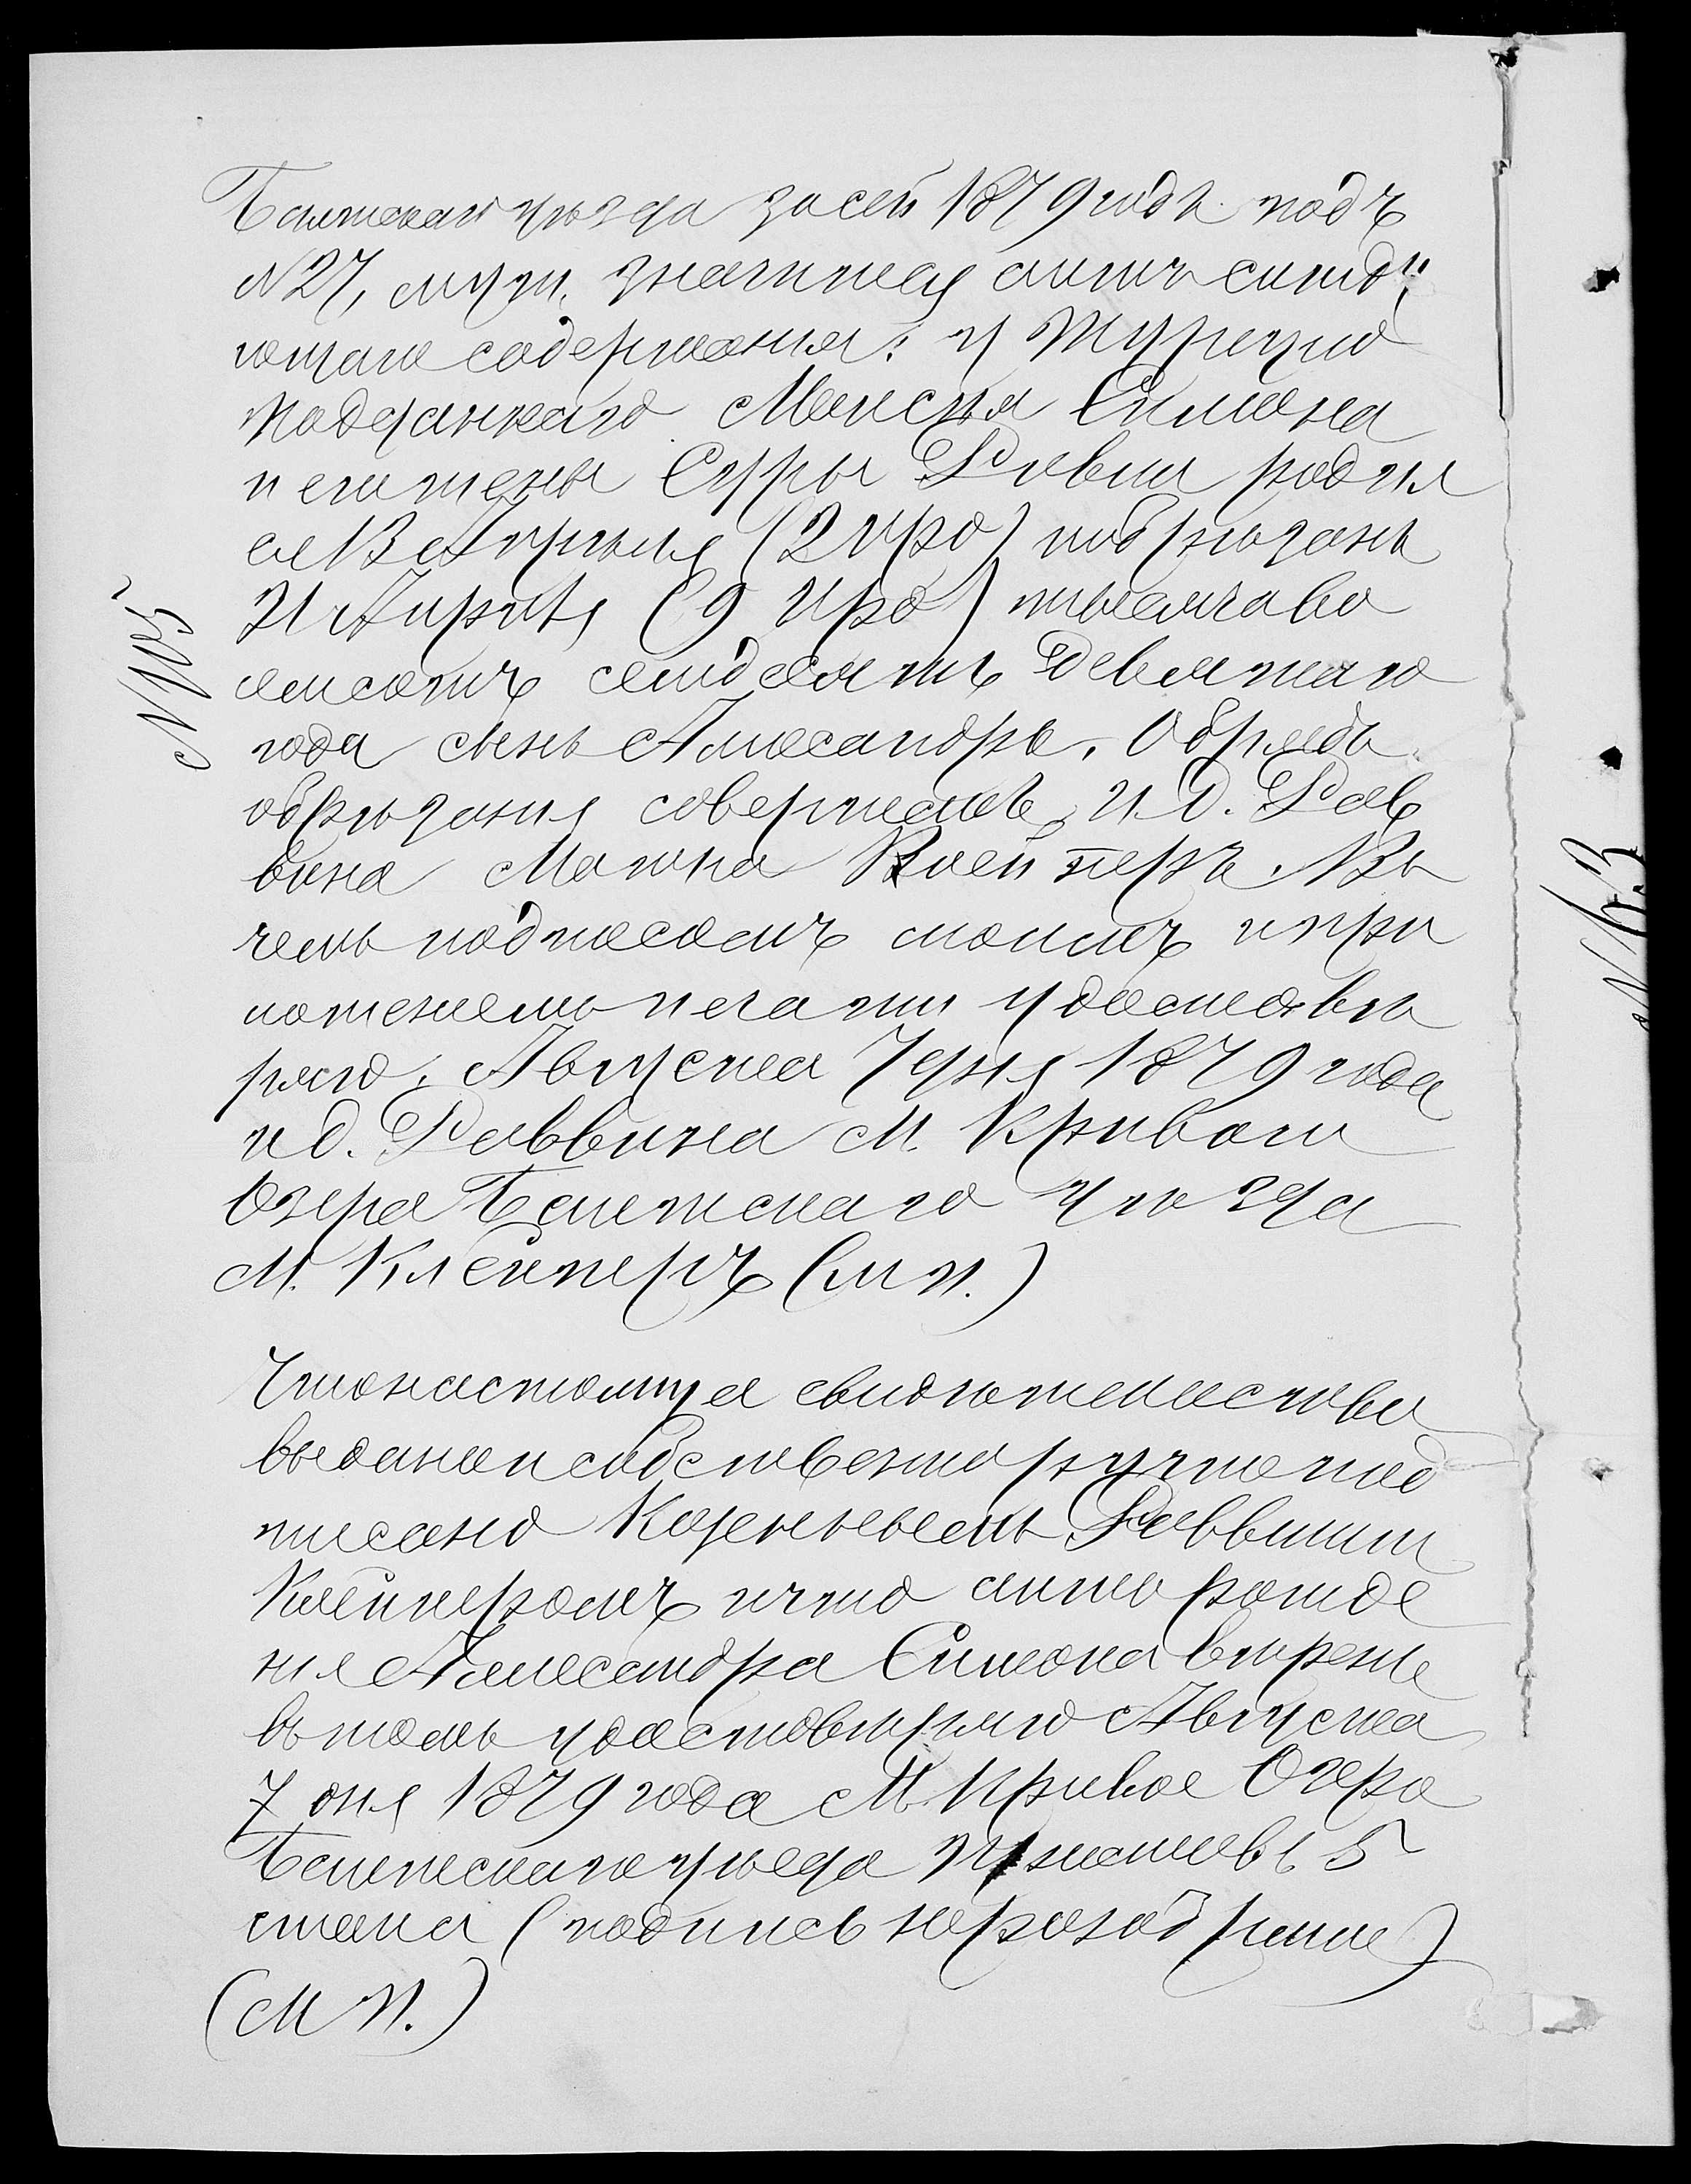 Балтскаго уѣзда за сей 1879 годъ подъ
№ 27, муж. значится актъ слѣду„
ющаго содержанія: у Турецко
подданнаго Моисея Симона
и его жены Суры Ривки родил
ся 13 Апрѣля (2 Ироъ) и обрѣзанъ
21 Апрѣля (9 Ироъ) тысяча во
семсотъ семдесятъ девятаго
года сынъ Александръ. Обрядъ
обрѣзанія совершалъ И. Д. Рав
вина Мошка Клейнеръ. Въ
чемъ подписомъ моимъ и при
ложеніемъ печати удостовѣ
ряю. Августа 7 дня 1879 года
и д. Раввина М. Кривого
Озера Балтскаго уѣзда
М. Клейнеръ (м п.)
Что настоящее свидѣтельство
выдано и собственноручно под
писано Казеннымъ Раввином
Клейнеромъ и что актъ рожде
нія Александра Симона вѣренъ
въ томъ удостовѣряю Августа
7 дня 1879 года М. Кривое Озеро
Балтскаго уѣзда Приставъ 5
стана (подпись неразобрание)
(М П.)
№ 105
№ 63